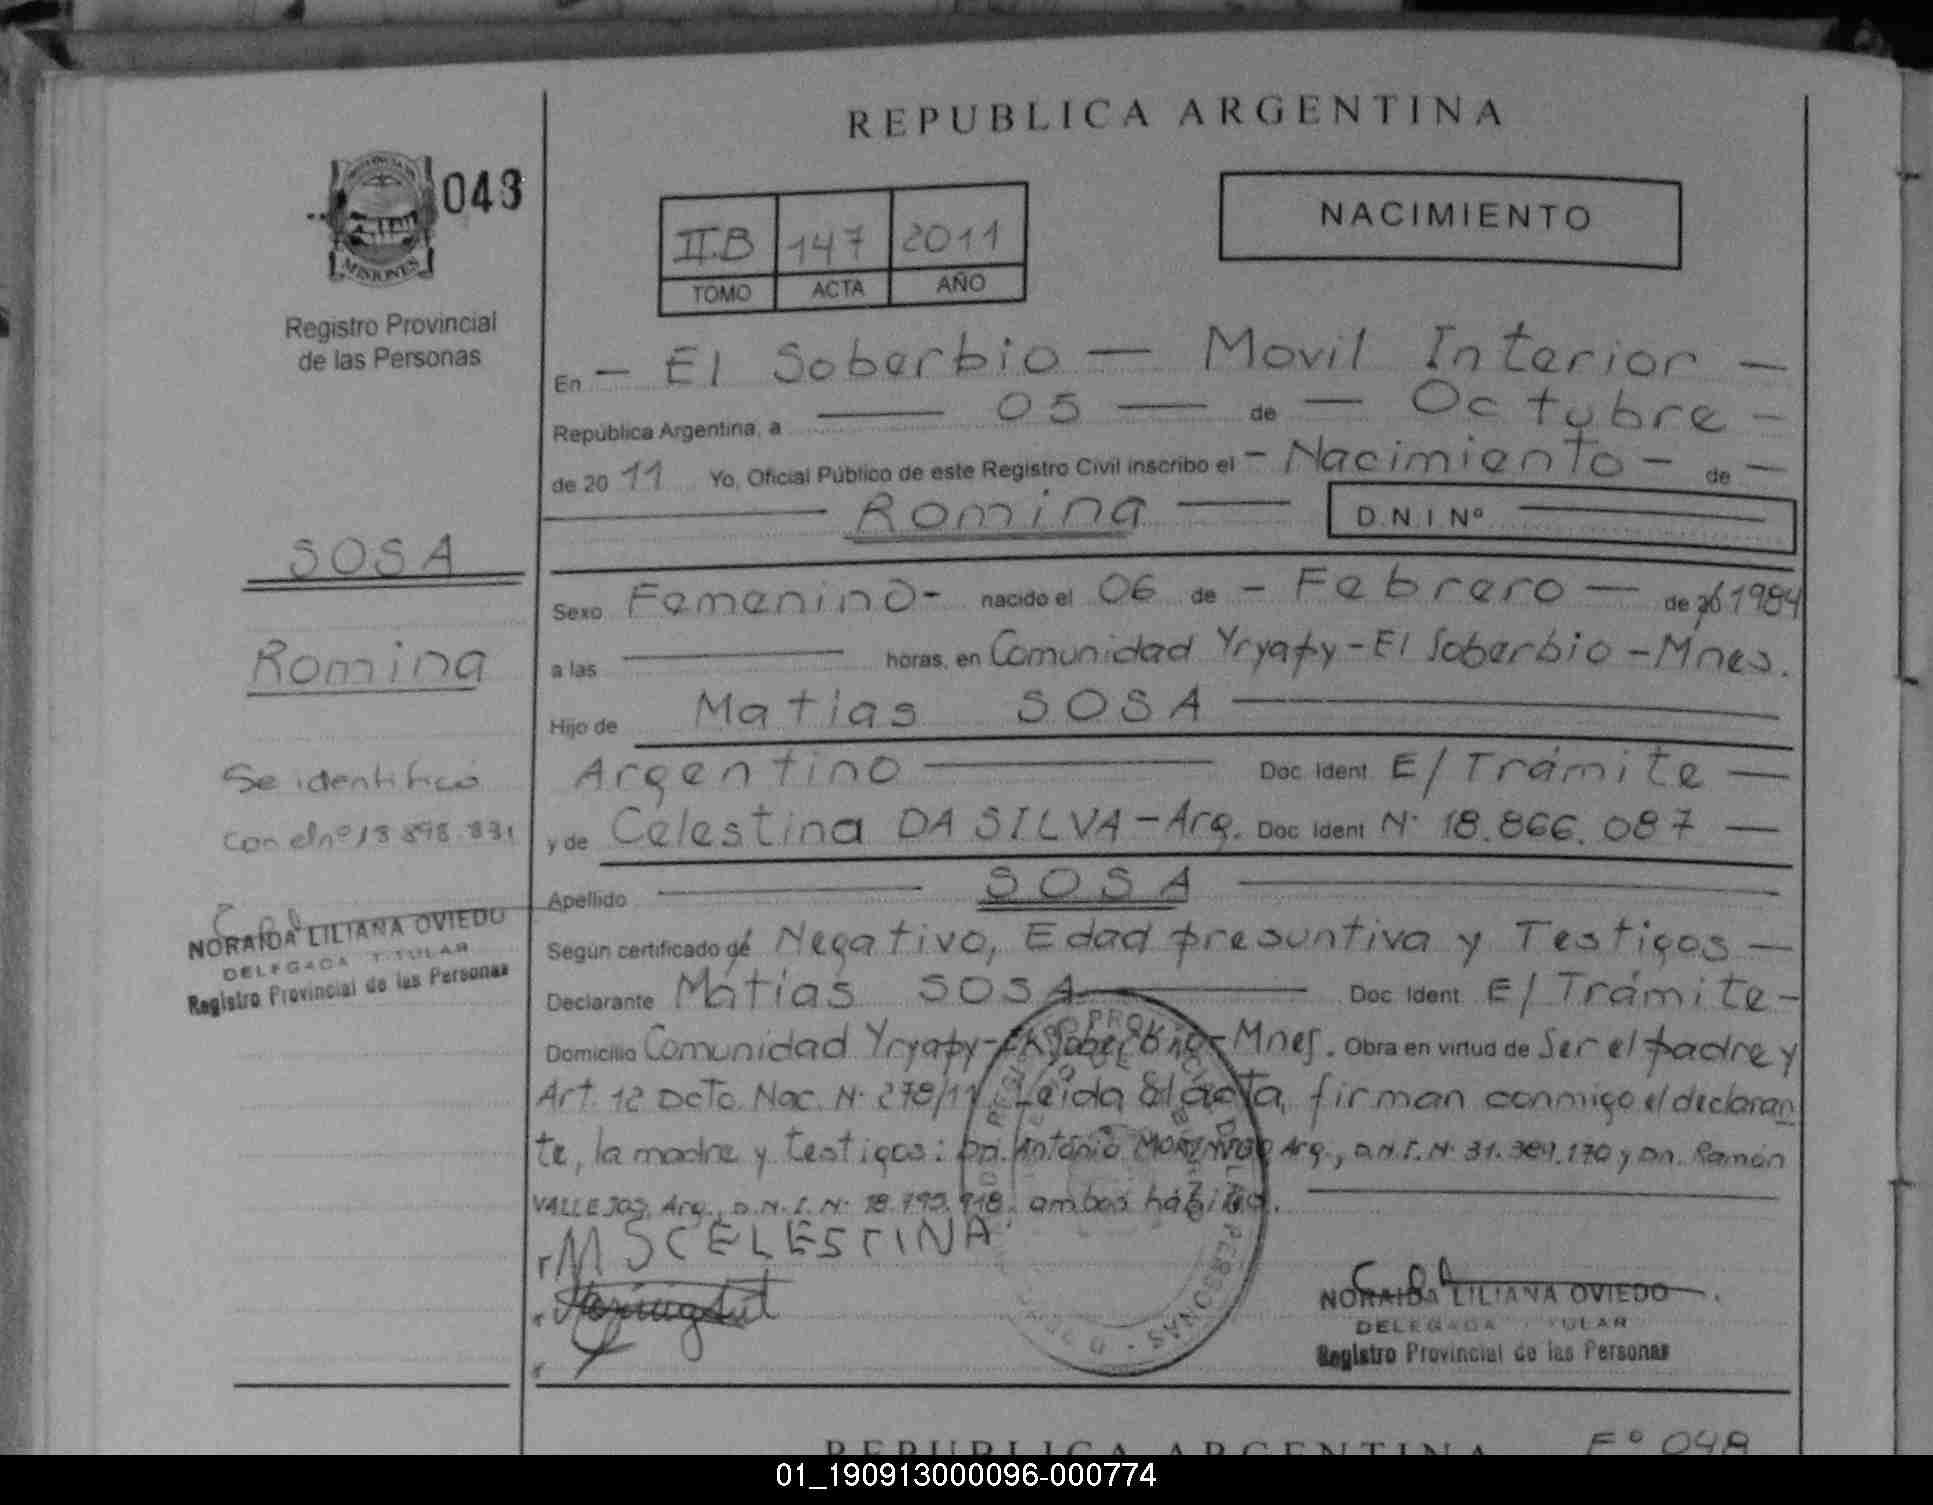 REPUBLICA ARGENTINA
043
MISIONES
Registro Provincial
de las Personas
II.B 147 2011
TOMO ACTA AÑO
NACIMIENTO
En - El Soberbio - Movil Interior -
República Argentina, a 05 de - Octubre -
de 2011 Yo, Oficial Público de este Registro Civil inscribo el - Nacimiento - de -
Romina D.N.I Nº
SOSA
Romina
Se identificó
con el nº 18 898 831
NORAIDA LILIANA OVIEDO
DELEGADA TITULAR
Registro Provincial de las Personas
Sexo Femenino - nacido el 06 de - Febrero - de 20 1984
a las horas, en Comunidad Yryapy - El Soberbio - Mnes.
Hijo de Matias SOSA
Argentino Doc. Ident. E/ Trámite
y de Celestina DA SILVA - Arg. Doc Ident Nº 18.866.087
Apellido SOSA
Según certificado de Negativo, Edad presuntiva y Testigos
Declarante Matías SOSA Doc Ident E/ Trámite -
Domicilio Comunidad Yryapy - El Soberbio - Mnes. Obra en virtud de Ser el padre y
Art. 12 Dcto. Nac. Nº 278/11 Leida el acta, firman conmigo el declaran
te, la madre y testigos: Dn. Antonio Arg., D.N.I. Nº 31.384.170 y Dn. Ramón
VALLEJOS, Arg., D.N.I. Nº 18.793.918. ambos hábiles.
MS CELESTINA
NORAIDA LILIANA OVIEDO
DELEGADA TITULAR
Registro Provincial de las Personas
REPUBLICA ARGENTINA Fº 048
01_190913000096-000774